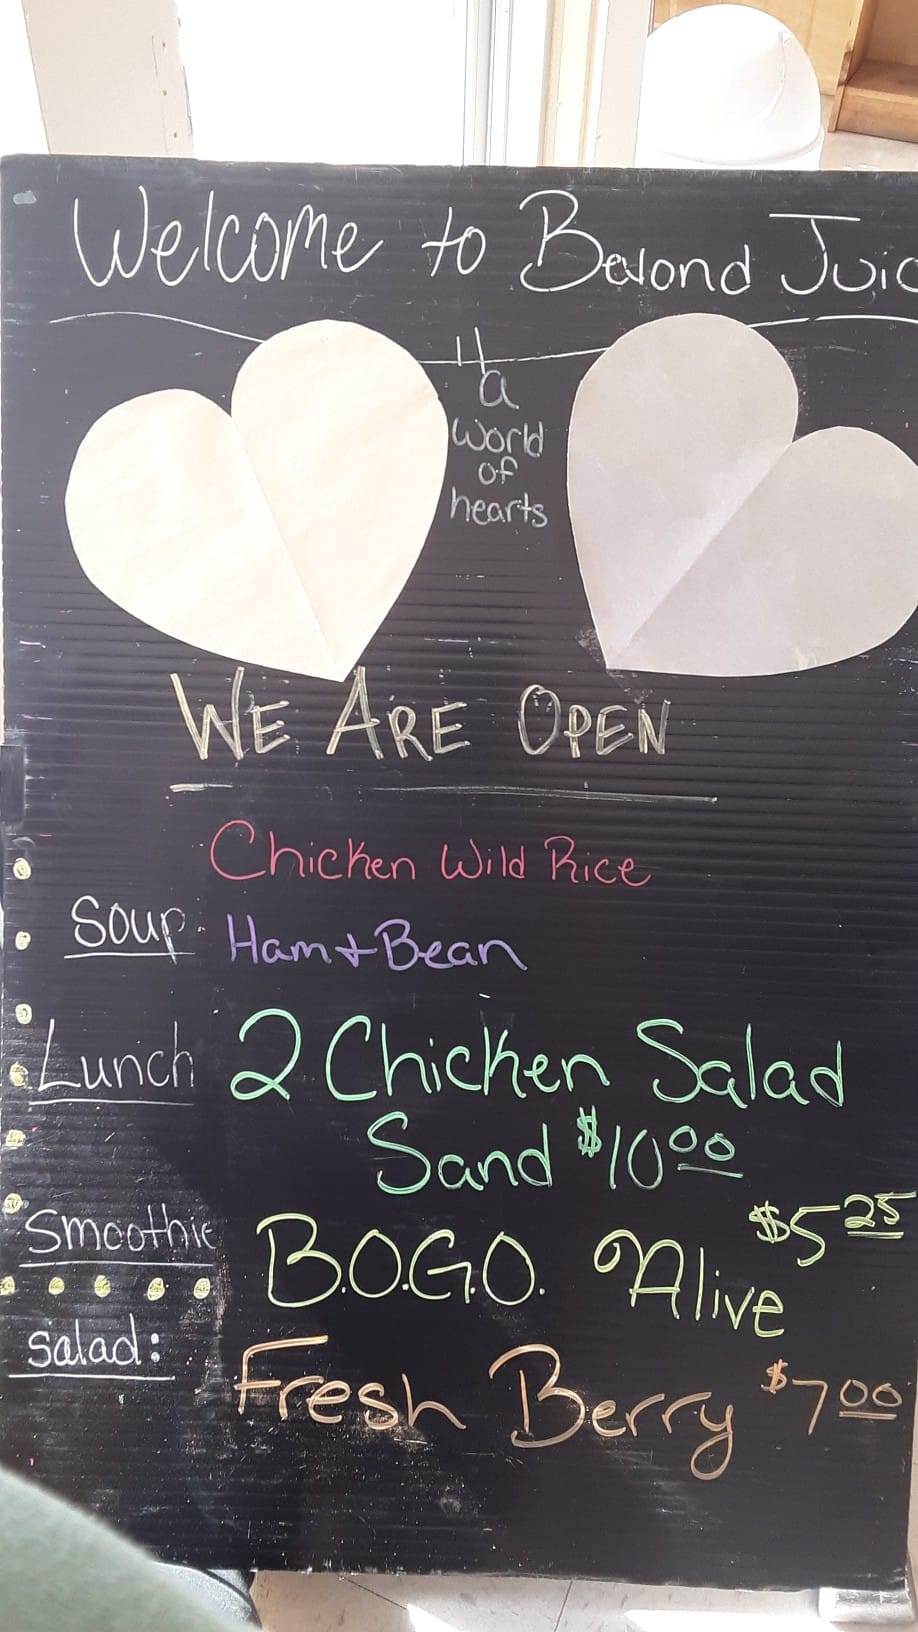 Welcome to Beyond Juic
a
world
of
hearts
WE ARE OPEN
Chicken Wild Rice
Soup: Ham + Bean
Lunch 2 Chicken Salad
Sand $10.00
Smoothie B.O.G.O. Alive $5.25
Salad: Fresh Berry $7.00